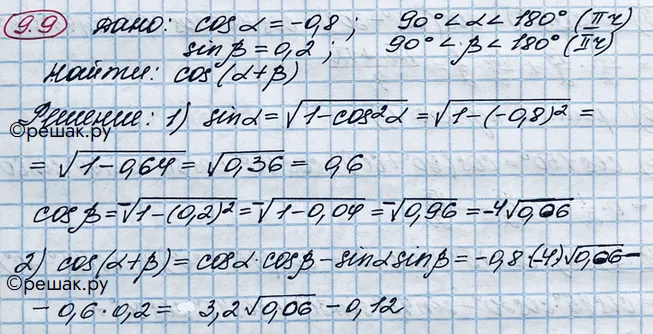 9.9 Дано: cos α = -0,8; 90° < α < 180° (II ч)
sin β = 0,2; 90° < β < 180° (II ч)
Найти: cos(α+β)
Решение: 1) sin α = √(1-cos²α) = √(1-(-0,8)²) =
©решак.ру
= √(1-0,64) = √0,36 = 0,6
cos β = -√(1-(0,2)²) = -√(1-0,04) = -√0,96 = -4√0,06
2) cos(α+β) = cos α · cos β - sin α sin β = -0,8·(-4)√0,06 -
©решак.ру
- 0,6 · 0,2 = 3,2√0,06 - 0,12